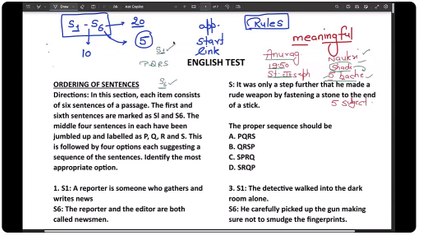 S1 - S6 → 20
→ 5
10
app.
start
link
Rules
meaningful
S1
PQRS
S6
Anurag
1950
St. Joseph
Naukri
Shadi
5 bache
5 subject
ENGLISH TEST
ORDERING OF SENTENCES
Directions: In this section, each item consists
of six sentences of a passage. The first and
sixth sentences are marked as SI and S6. The
middle four sentences in each have been
jumbled up and labelled as P, Q, R and S. This
is followed by four options each suggesting a
sequence of the sentences. Identify the most
appropriate option.
1. S1: A reporter is someone who gathers and
writes news
S6: The reporter and the editor are both
called newsmen.
S: It was only a step further that he made a
rude weapon by fastening a stone to the end
of a stick.
The proper sequence should be
A. PQRS
B. QRSP
C. SPRQ
D. SRQP
3. S1: The detective walked into the dark
room alone.
S6: He carefully picked up the gun making
sure not to smudge the fingerprints.